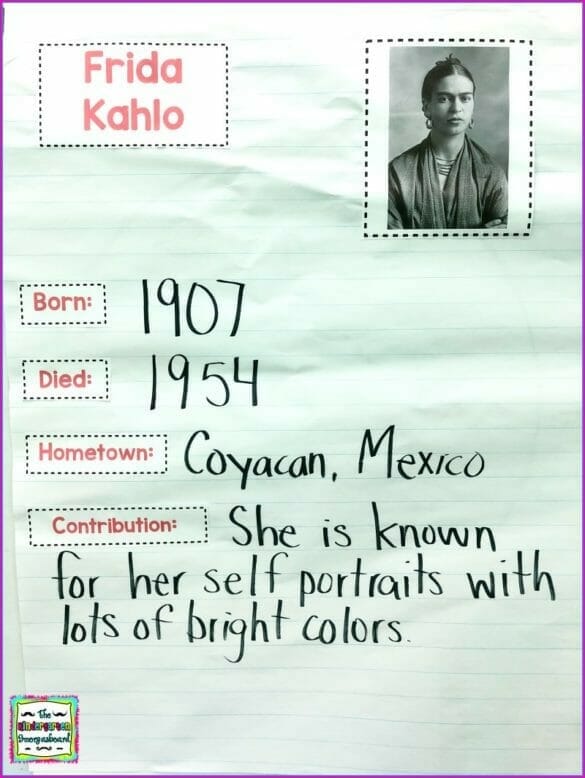 Frida
Kahlo
Born: 1907
Died: 1954
Hometown: Coyacan, Mexico
Contribution: She is known
for her self portraits with
lots of bright colors.
The
Kindergarten
Smorgasboard